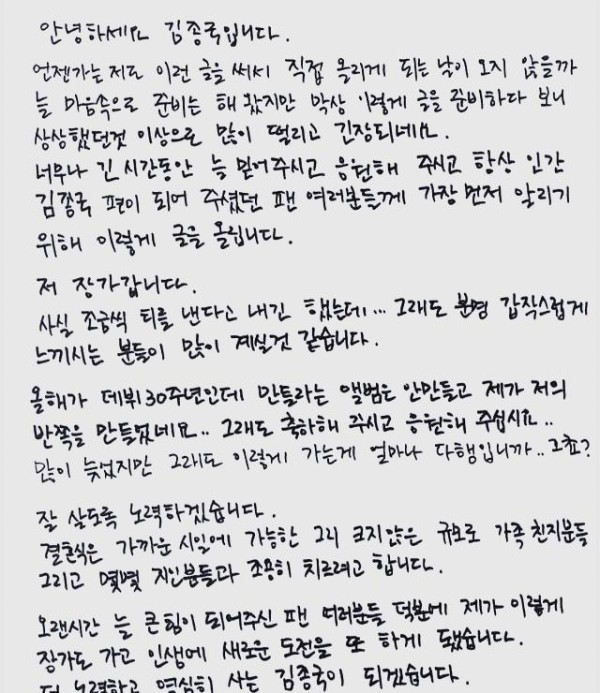 안녕하세요 김종국입니다.
언젠가는 저도 이런 글을 써서 직접 올리게 되는 날이 오지 않을까
늘 마음속으로 준비는 해 왔지만 막상 이렇게 글을 준비하다 보니
상상했던것 이상으로 많이 떨리고 긴장되네요.
너무나 긴 시간동안 늘 믿어주시고 응원해 주시고 항상 인간
김종국 편이 되어 주셨던 팬 여러분들께 가장 먼저 알리기
위해 이렇게 글을 올립니다.
저 장가갑니다.
사실 조금씩 티를 낸다고 내긴 했는데... 그래도 분명 갑작스럽게
느끼시는 분들이 많이 계실것 같습니다.
올해가 데뷔 30주년인데 만들라는 앨범은 안만들고 제가 저의
반쪽을 만들었네요.. 그래도 축하해 주시고 응원해 주십시요..
많이 늦었지만 그래도 이렇게 가는게 얼마나 다행입니까.. 그쵸?
잘 살도록 노력하겠습니다.
결혼식은 가까운 시일에 가능한 그리 크지않은 규모로 가족 친지분들
그리고 몇몇 지인분들과 조용히 치르려고 합니다.
오랜시간 늘 큰 힘이 되어주신 팬 여러분들 덕분에 제가 이렇게
장가도 가고 인생에 새로운 도전을 또 하게 됐습니다.
더 노력하고 열심히 사는 김종국이 되겠습니다.